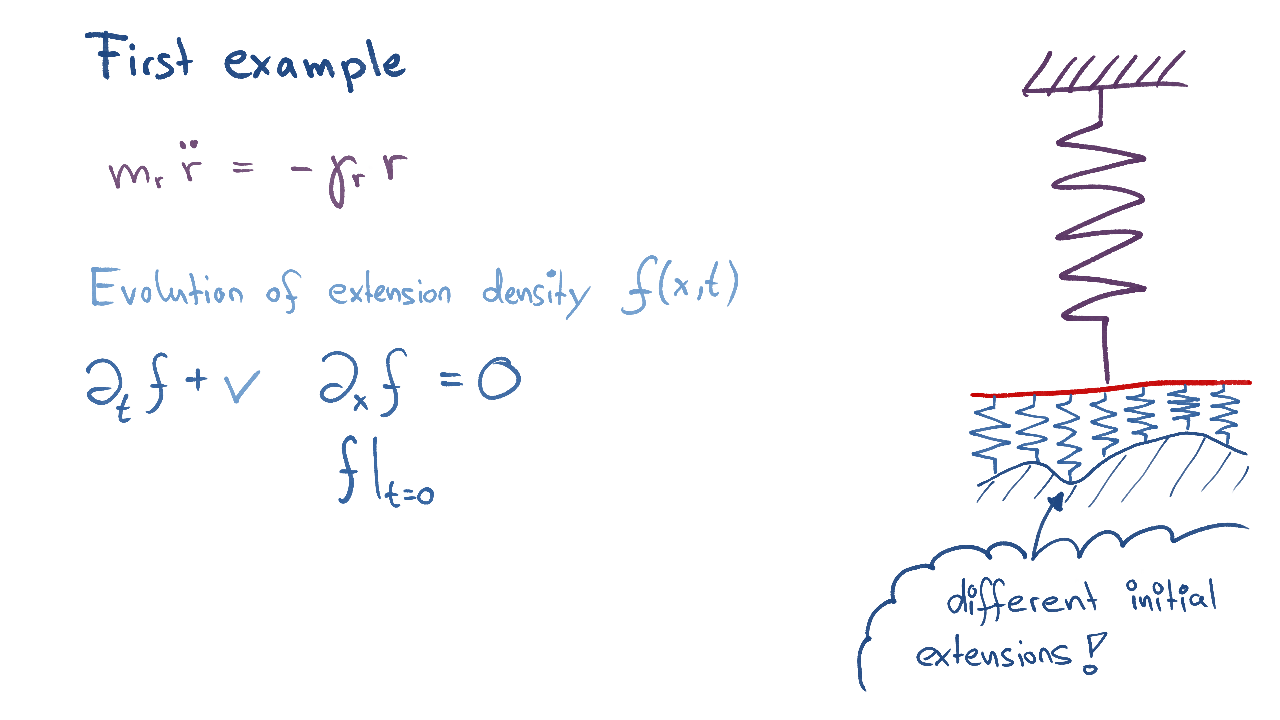 First example
mᵣ r̈ = - γᵣ r
Evolution of extension density f(x,t)
∂ₜ f + v ∂ₓ f = 0
f|ₜ₌₀
different initial
extensions!